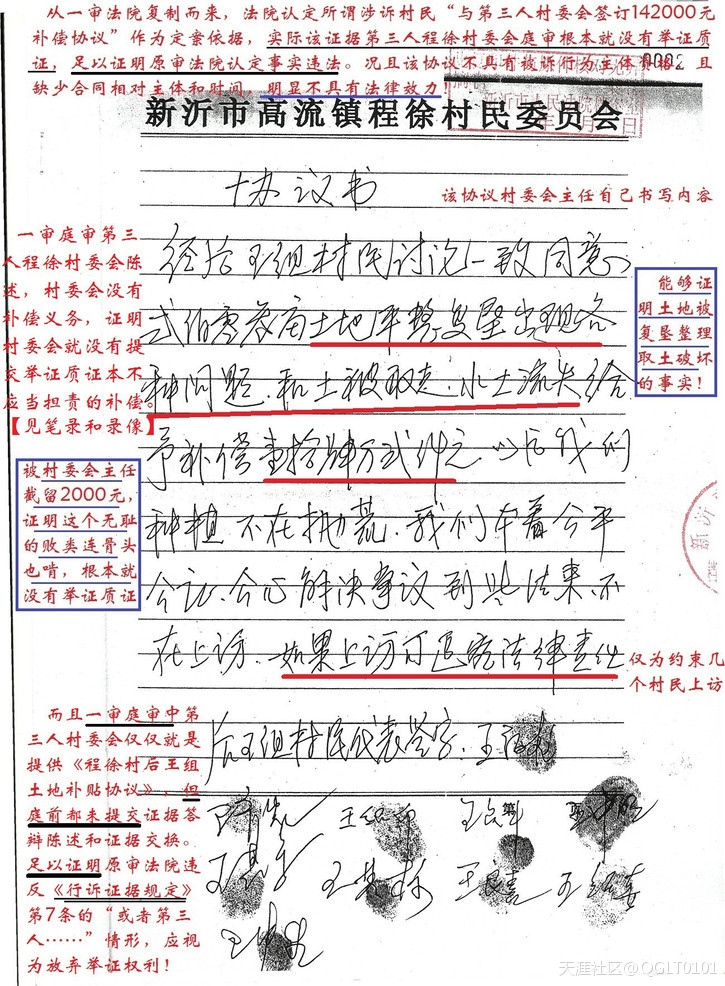 从一审法院复制而来，法院认定所谓涉诉村民“与第三人村委会签订142000元
补偿协议”作为定案依据，实际该证据第三人程徐村委会庭审根本就没有举证质
证，足以证明原审法院认定事实违法。况且该协议不具有被诉行为主体资格，且
缺少合同相对主体和时间，明显不具有法律效力！
0002
新沂市高流镇程徐村民委员会
协议书
该协议村委会主任自己书写内容
经后王组村民讨论一致同意
土地平整复垦出现各
种问题，和土被取走.水土流失给
予补偿壹拾肆万贰仟元 以后我们
种植不在抛荒.我们本着公平
公认.公心解决争议到些结果.不
在上访.如果上访可追究法律责任
后王组村民代表签字.
一审庭审第三
人程徐村委会陈
述，村委会没有
补偿义务，证明
村委会就没有提
交举证质证本不
应当担责的补偿。
【见笔录和录像】
能够证
明土地被
复垦整理
取土破坏
的事实！
被村委会主任
截留2000元，
证明这个无耻
的败类连骨头
也啃，根本就
没有举证质证
仅为约束几
个村民上访
而且一审庭审中第
三人村委会仅仅就是
提供《程徐村后王组
土地补贴协议》，但
庭前都未提交证据答
辩陈述和证据交换。
足以证明原审法院违
反《行诉证据规定》
第7条的“或者第三
人……”情形，应视
为放弃举证权利！
新沂
天涯社区@QGLT0101